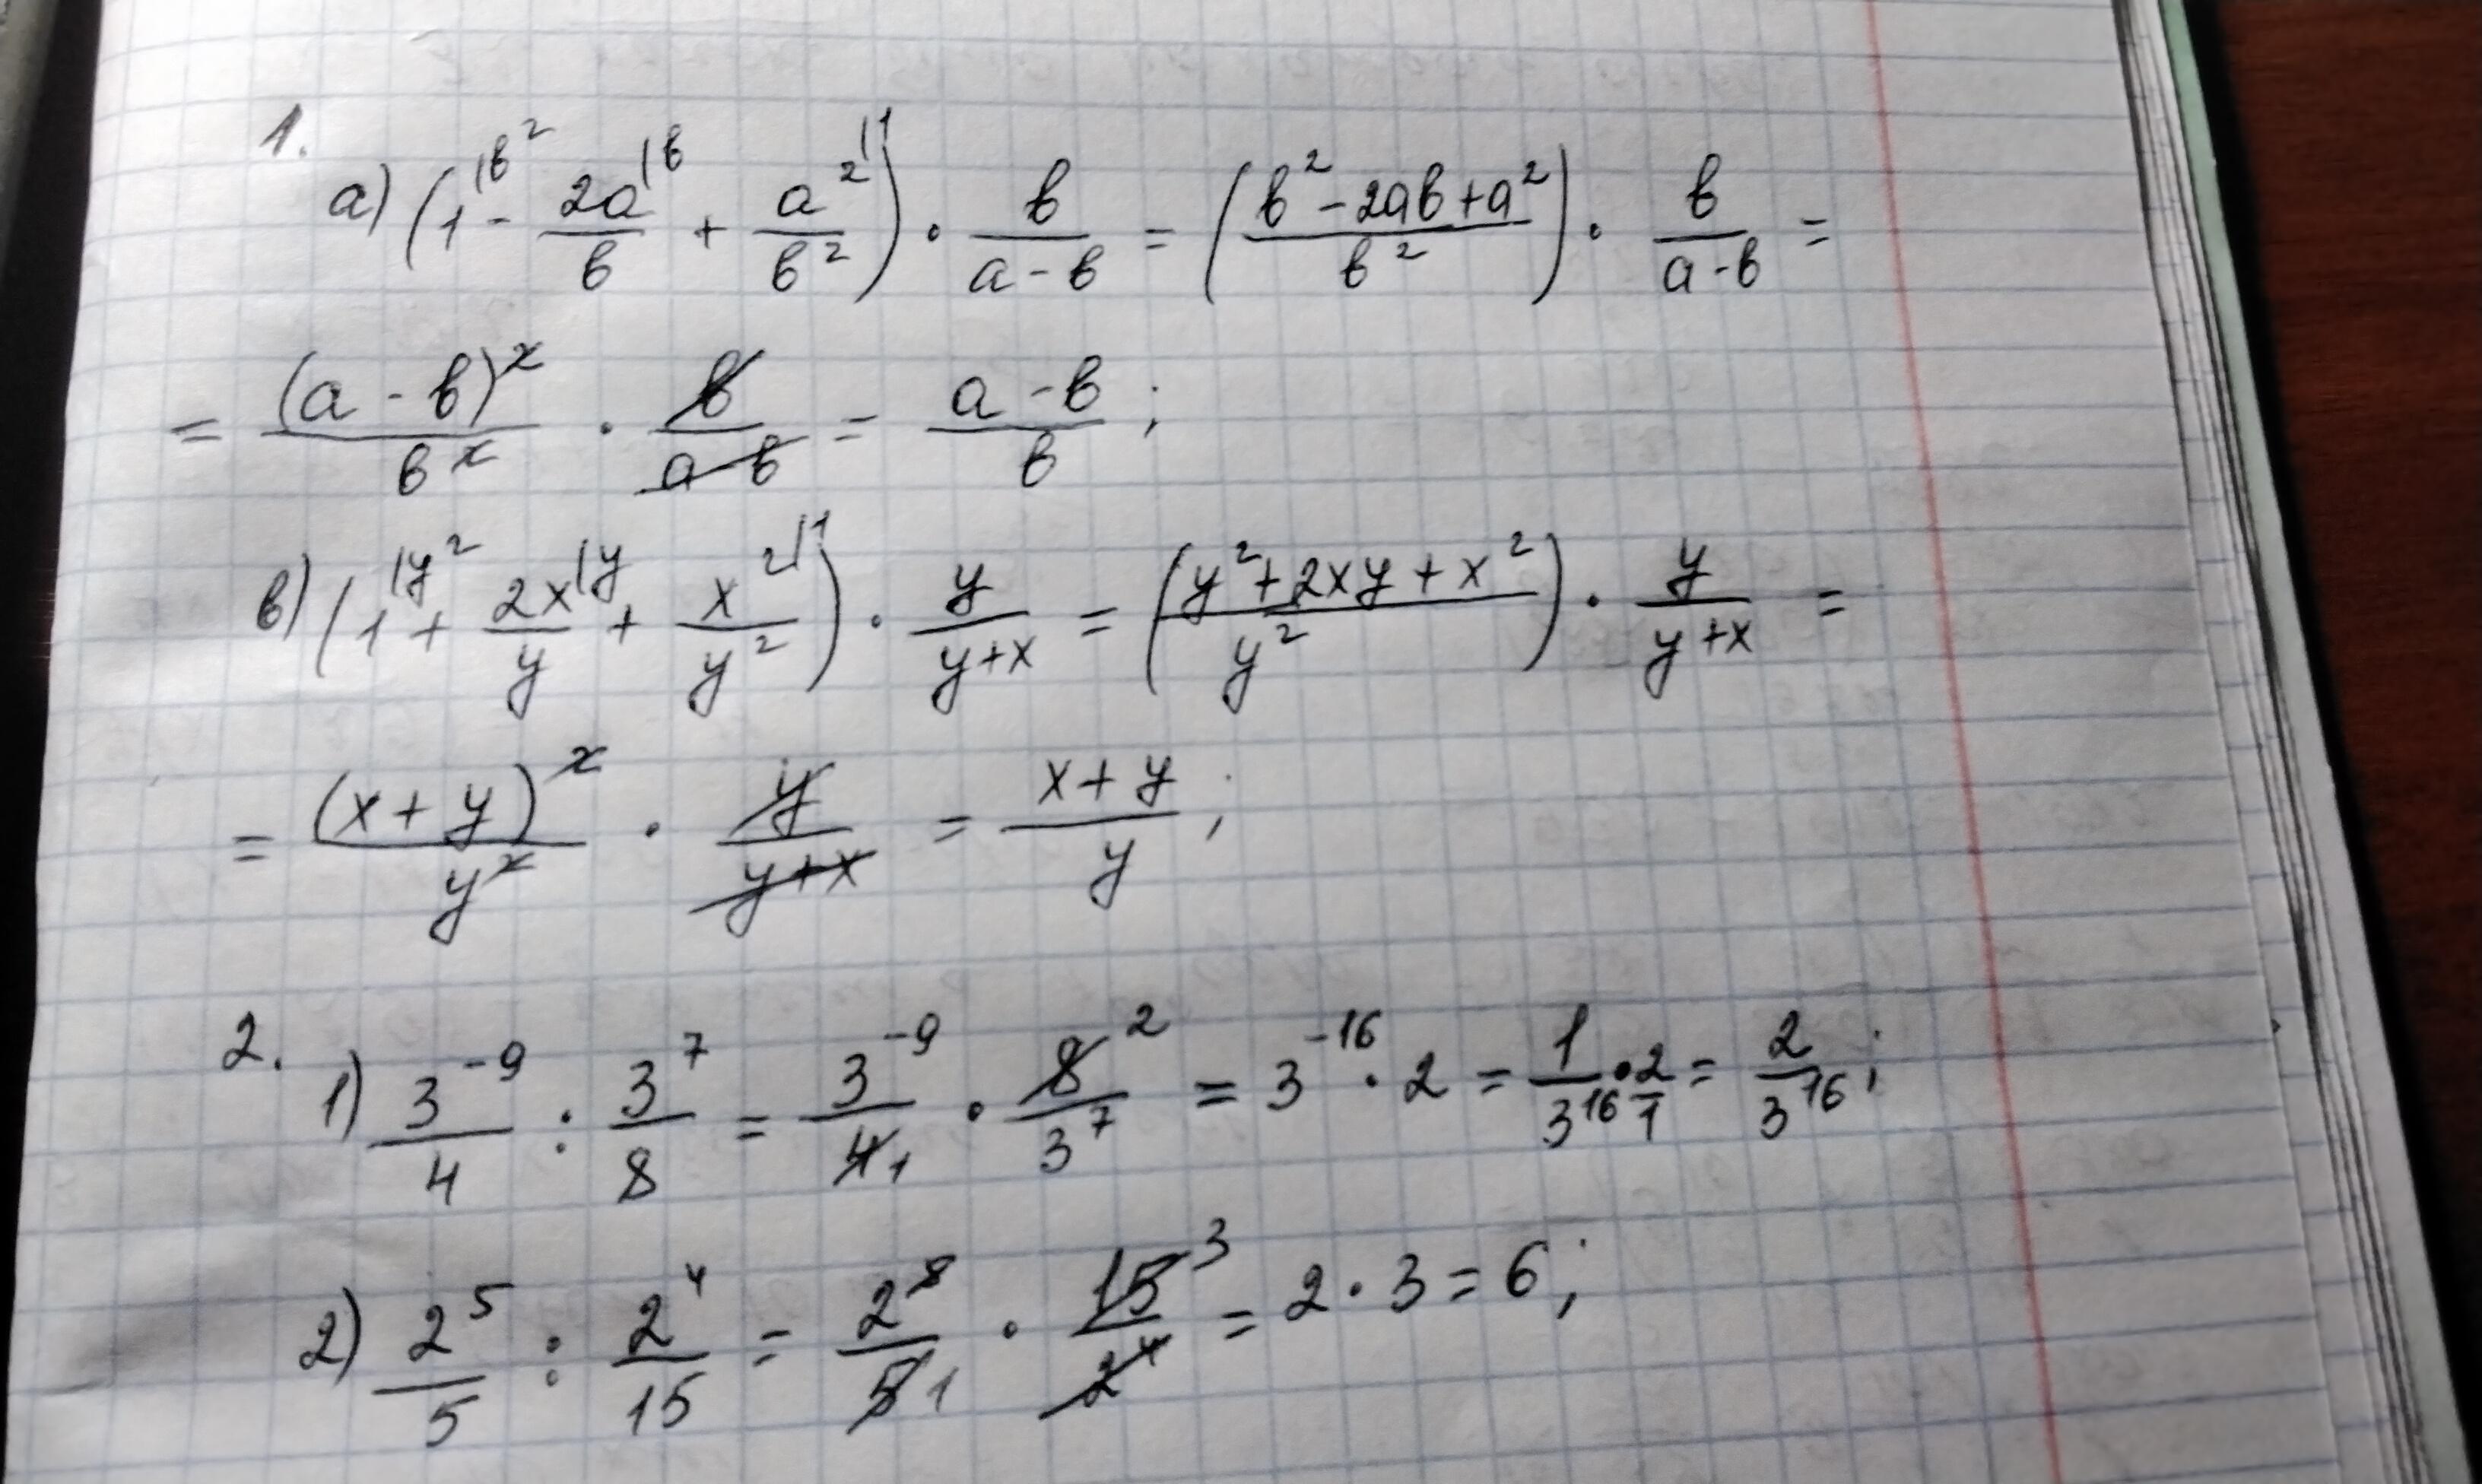 1.
а) (1^{|в^2} - \frac{2a^{|в}}{в} + \frac{a^{2|1}}{в^2}) · \frac{в}{a-в} = (\frac{в^2-2aв+a^2}{в^2}) · \frac{в}{a-в} =
= \frac{(a-в)^2}{в^2} · \frac{в}{a-в} = \frac{a-в}{в};
в) (1^{|y^2} + \frac{2x^{|y}}{y} + \frac{x^{2|1}}{y^2}) · \frac{y}{y+x} = (\frac{y^2+2xy+x^2}{y^2}) · \frac{y}{y+x} =
= \frac{(x+y)^2}{y^2} · \frac{y}{y+x} = \frac{x+y}{y};
2. 1) \frac{3^{-9}}{4} : \frac{3^7}{8} = \frac{3^{-9}}{4 1} · \frac{8 2}{3^7} = 3^{-16} · 2 = \frac{1}{3^{16}} · \frac{2}{1} = \frac{2}{3^{16}};
2) \frac{2^5}{5} : \frac{2^4}{15} = \frac{2^5}{5 1} · \frac{15 3}{2^4} = 2 · 3 = 6;